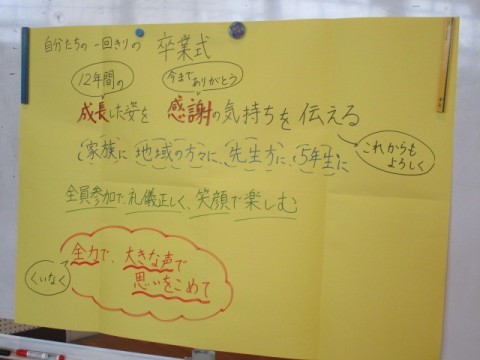 自分たちの 一回きりの 卒業式
12年間の 今までありがとう
成長した姿を 感謝の気持ちを 伝える
これからもよろしく
家族に 地域の方々に、先生方に、5年生に
全員参加で、礼儀正しく、笑顔で楽しむ
全力で、大きな声で
思いをこめて
くいなく